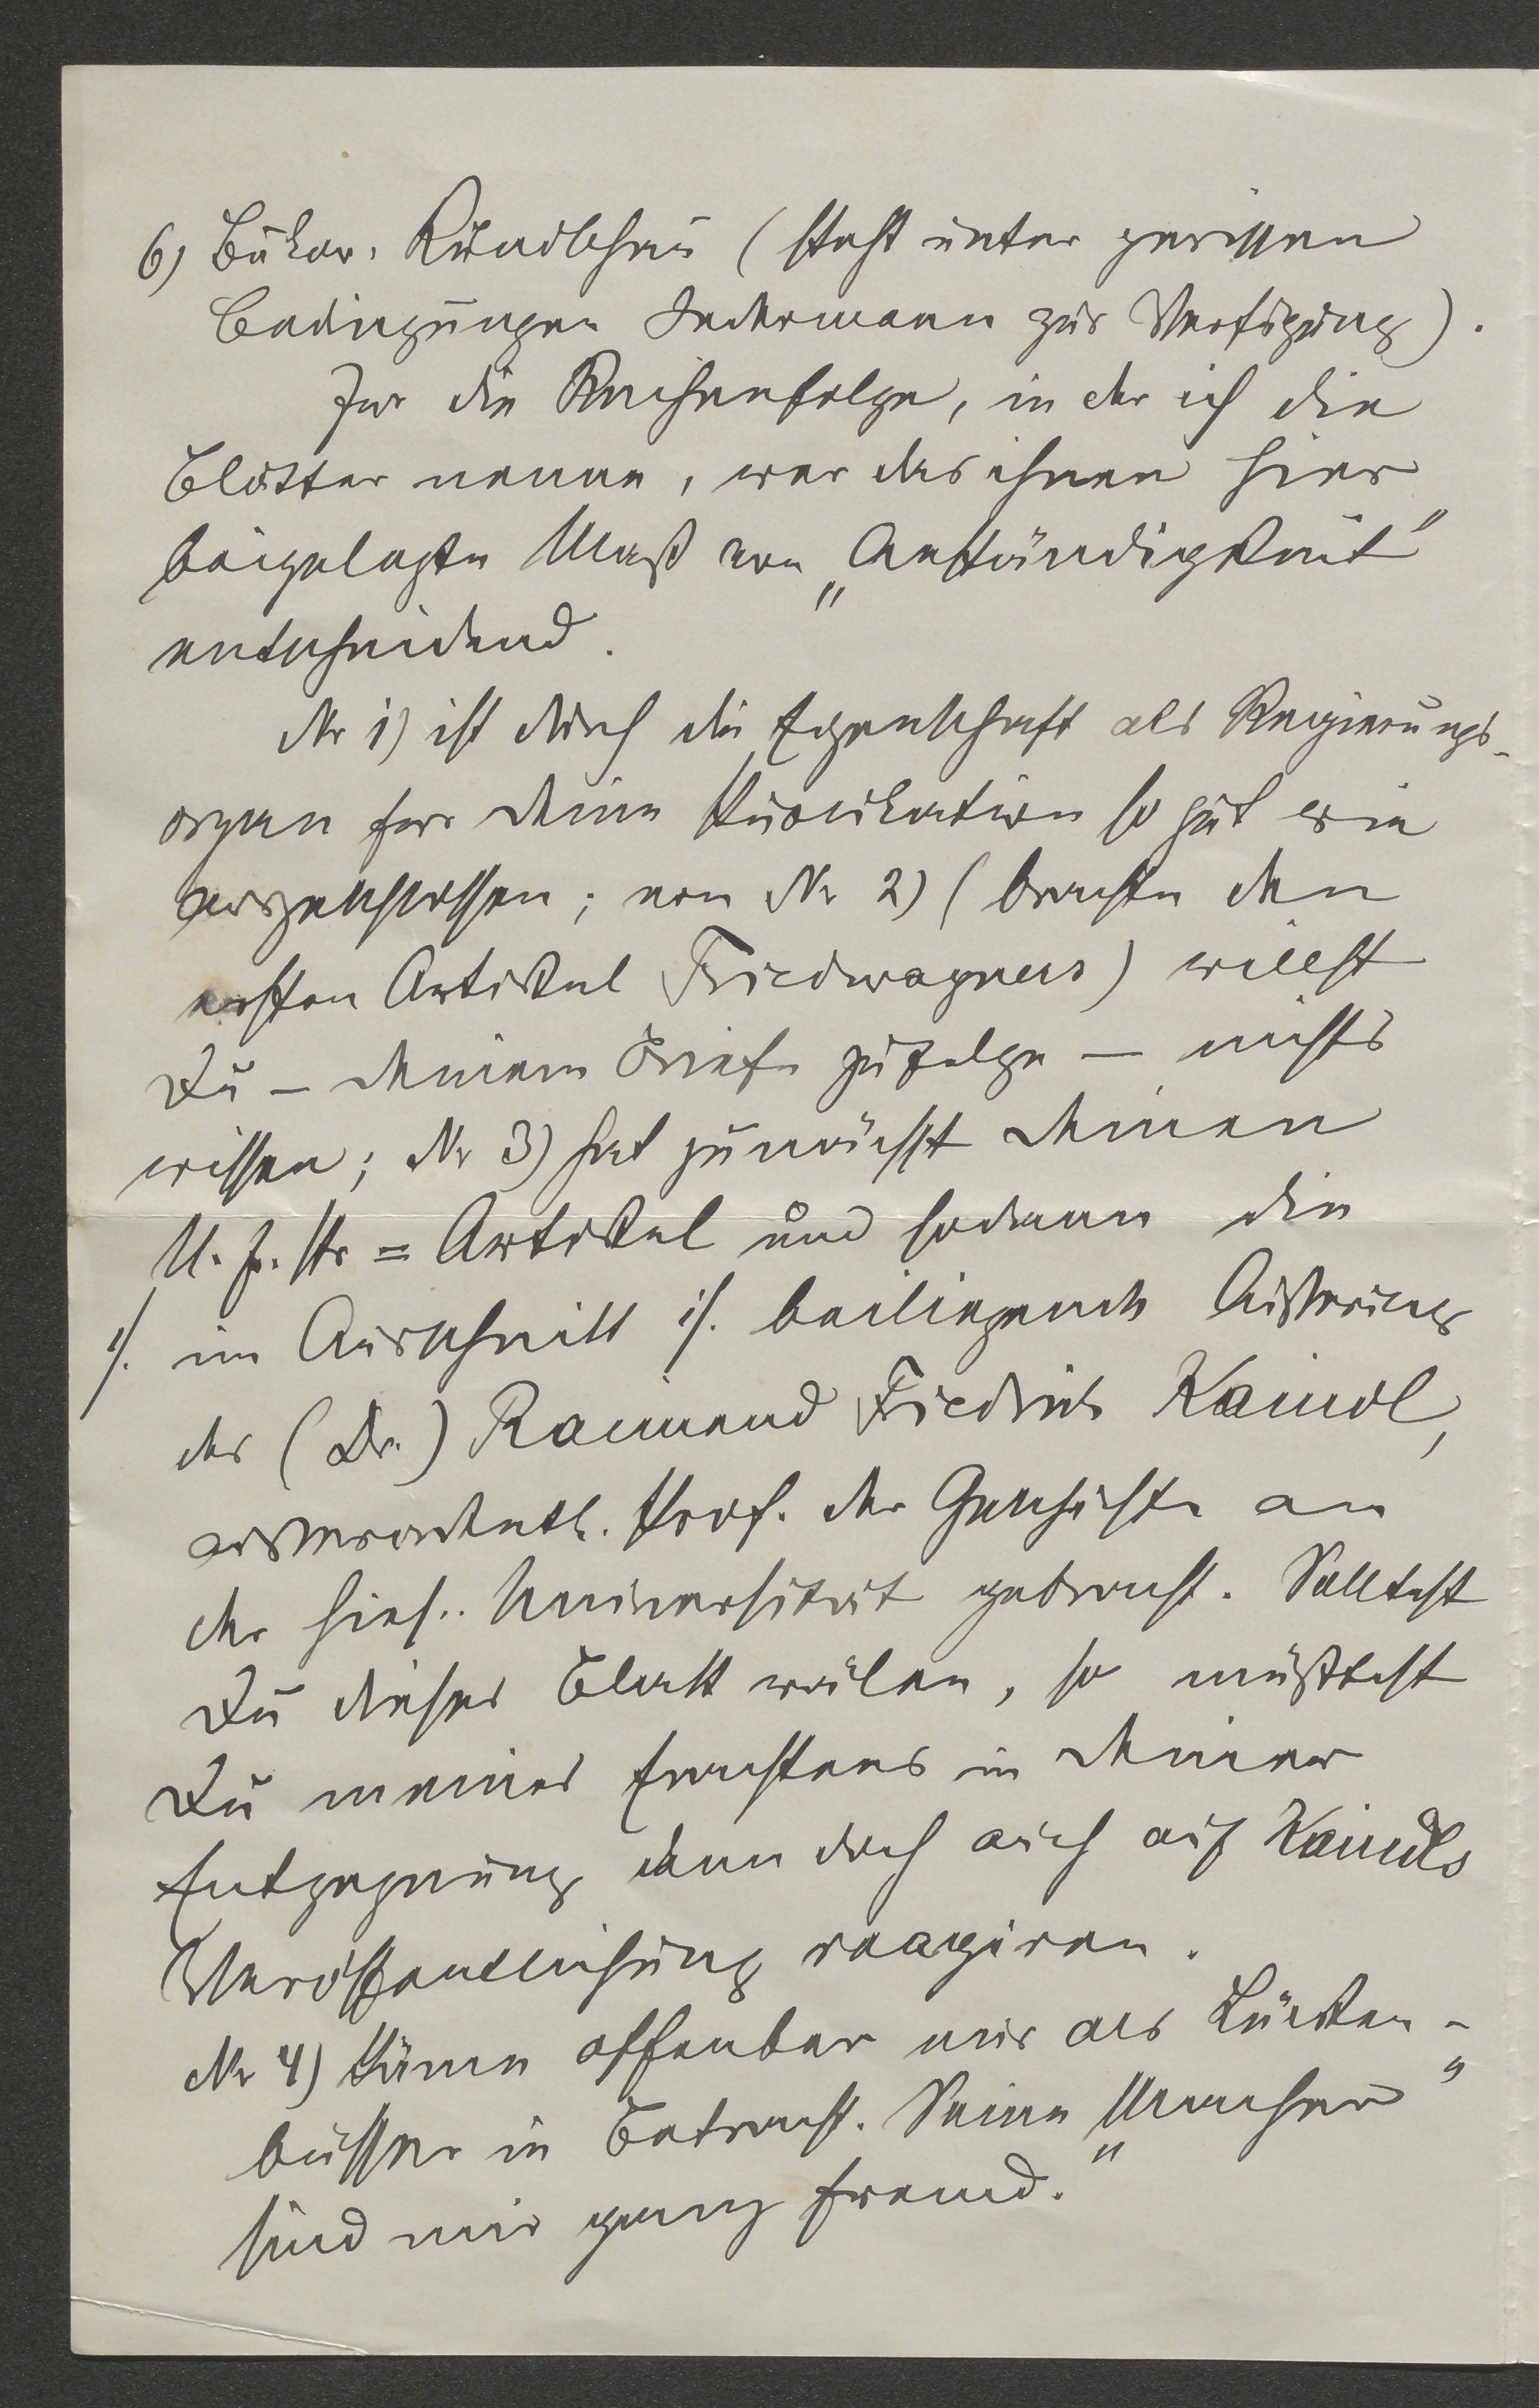 6) Bukow. Rundschau (steht unter gewissen
Bedingungen Jedermann zur Verfügung).
Für die Reihenfolge, in der ich die
Blätter nenne, war das ihnen hier
beigelegte Maß von „Anständigkeit"
entscheidend.
Nr 1) ist durch die Eigenschaft als Regierungs-
organ für deine Publikation so gut wie
ausgeschlossen; von Nr 2) (brachte den
ersten Artikel Friedwagners) willst
Du – deinem Briefe zufolge – nichts
wissen; Nr 3) hat zunächst deinen
N. fr. Pr = Artikel und sodann die
im Ausschnitt 1/. beiliegende Äußerung
1/.
des (Dr.) Raimund Friedrich Kaindl,
außerordentl. Prof. der Geschichte an
der hies. Universität gebracht. Solltest
Du dieses Blatt wälen, so müßtest
Du meines Erachtens in deiner
Entgegnung dann doch auch auf Kaindls
Veröffentlichung reagiren.
Nr 4) käme offenbar nur als Lücken-
büsser in Betracht. Seine „Macher"
sind mir ganz fremd.